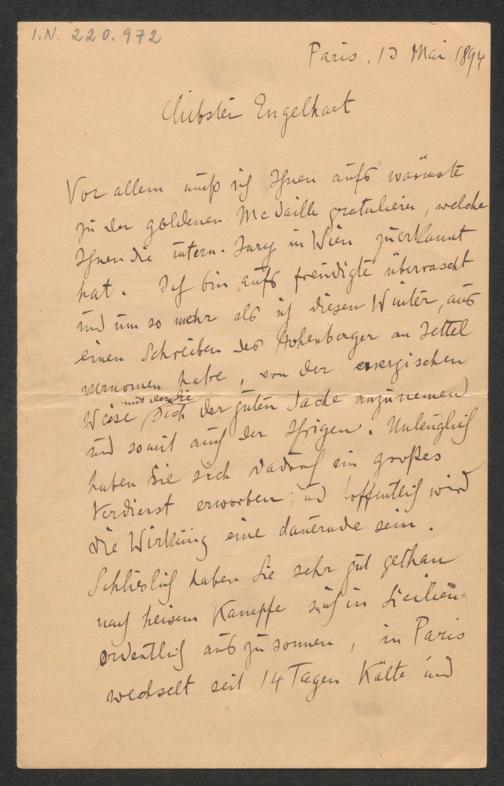 I.N. 220.972
Paris. 13 Mai 1894
Liebster Engelhart
Vor allem muß ich Ihnen aufs wärmste
zu der goldenen Medaille gratulieren, welche
Ihnen die intern. Jury in Wien zuerkannt
hat. Ich bin aufs freudigte überrascht
und um so mehr als ich diesen Winter, aus
einen Schreiben des Hohenberger an Jettel
vernomen habe, von der energischen
Weise mit der Sie sich der guten Sache anzunemen
und somit auch der Ihrigen. Unleuglich
haben Sie sich dadurch ein großes
Verdienst erworben; und hoffentlich wird
die Wirkung eine dauernde sein.
Schlieslich haben Sie sehr gut gethan
nach heisem Kampfe sich in Sicilien
ordentlich auszusonnen, in Paris
wechselt seit 14 Tagen Kälte und